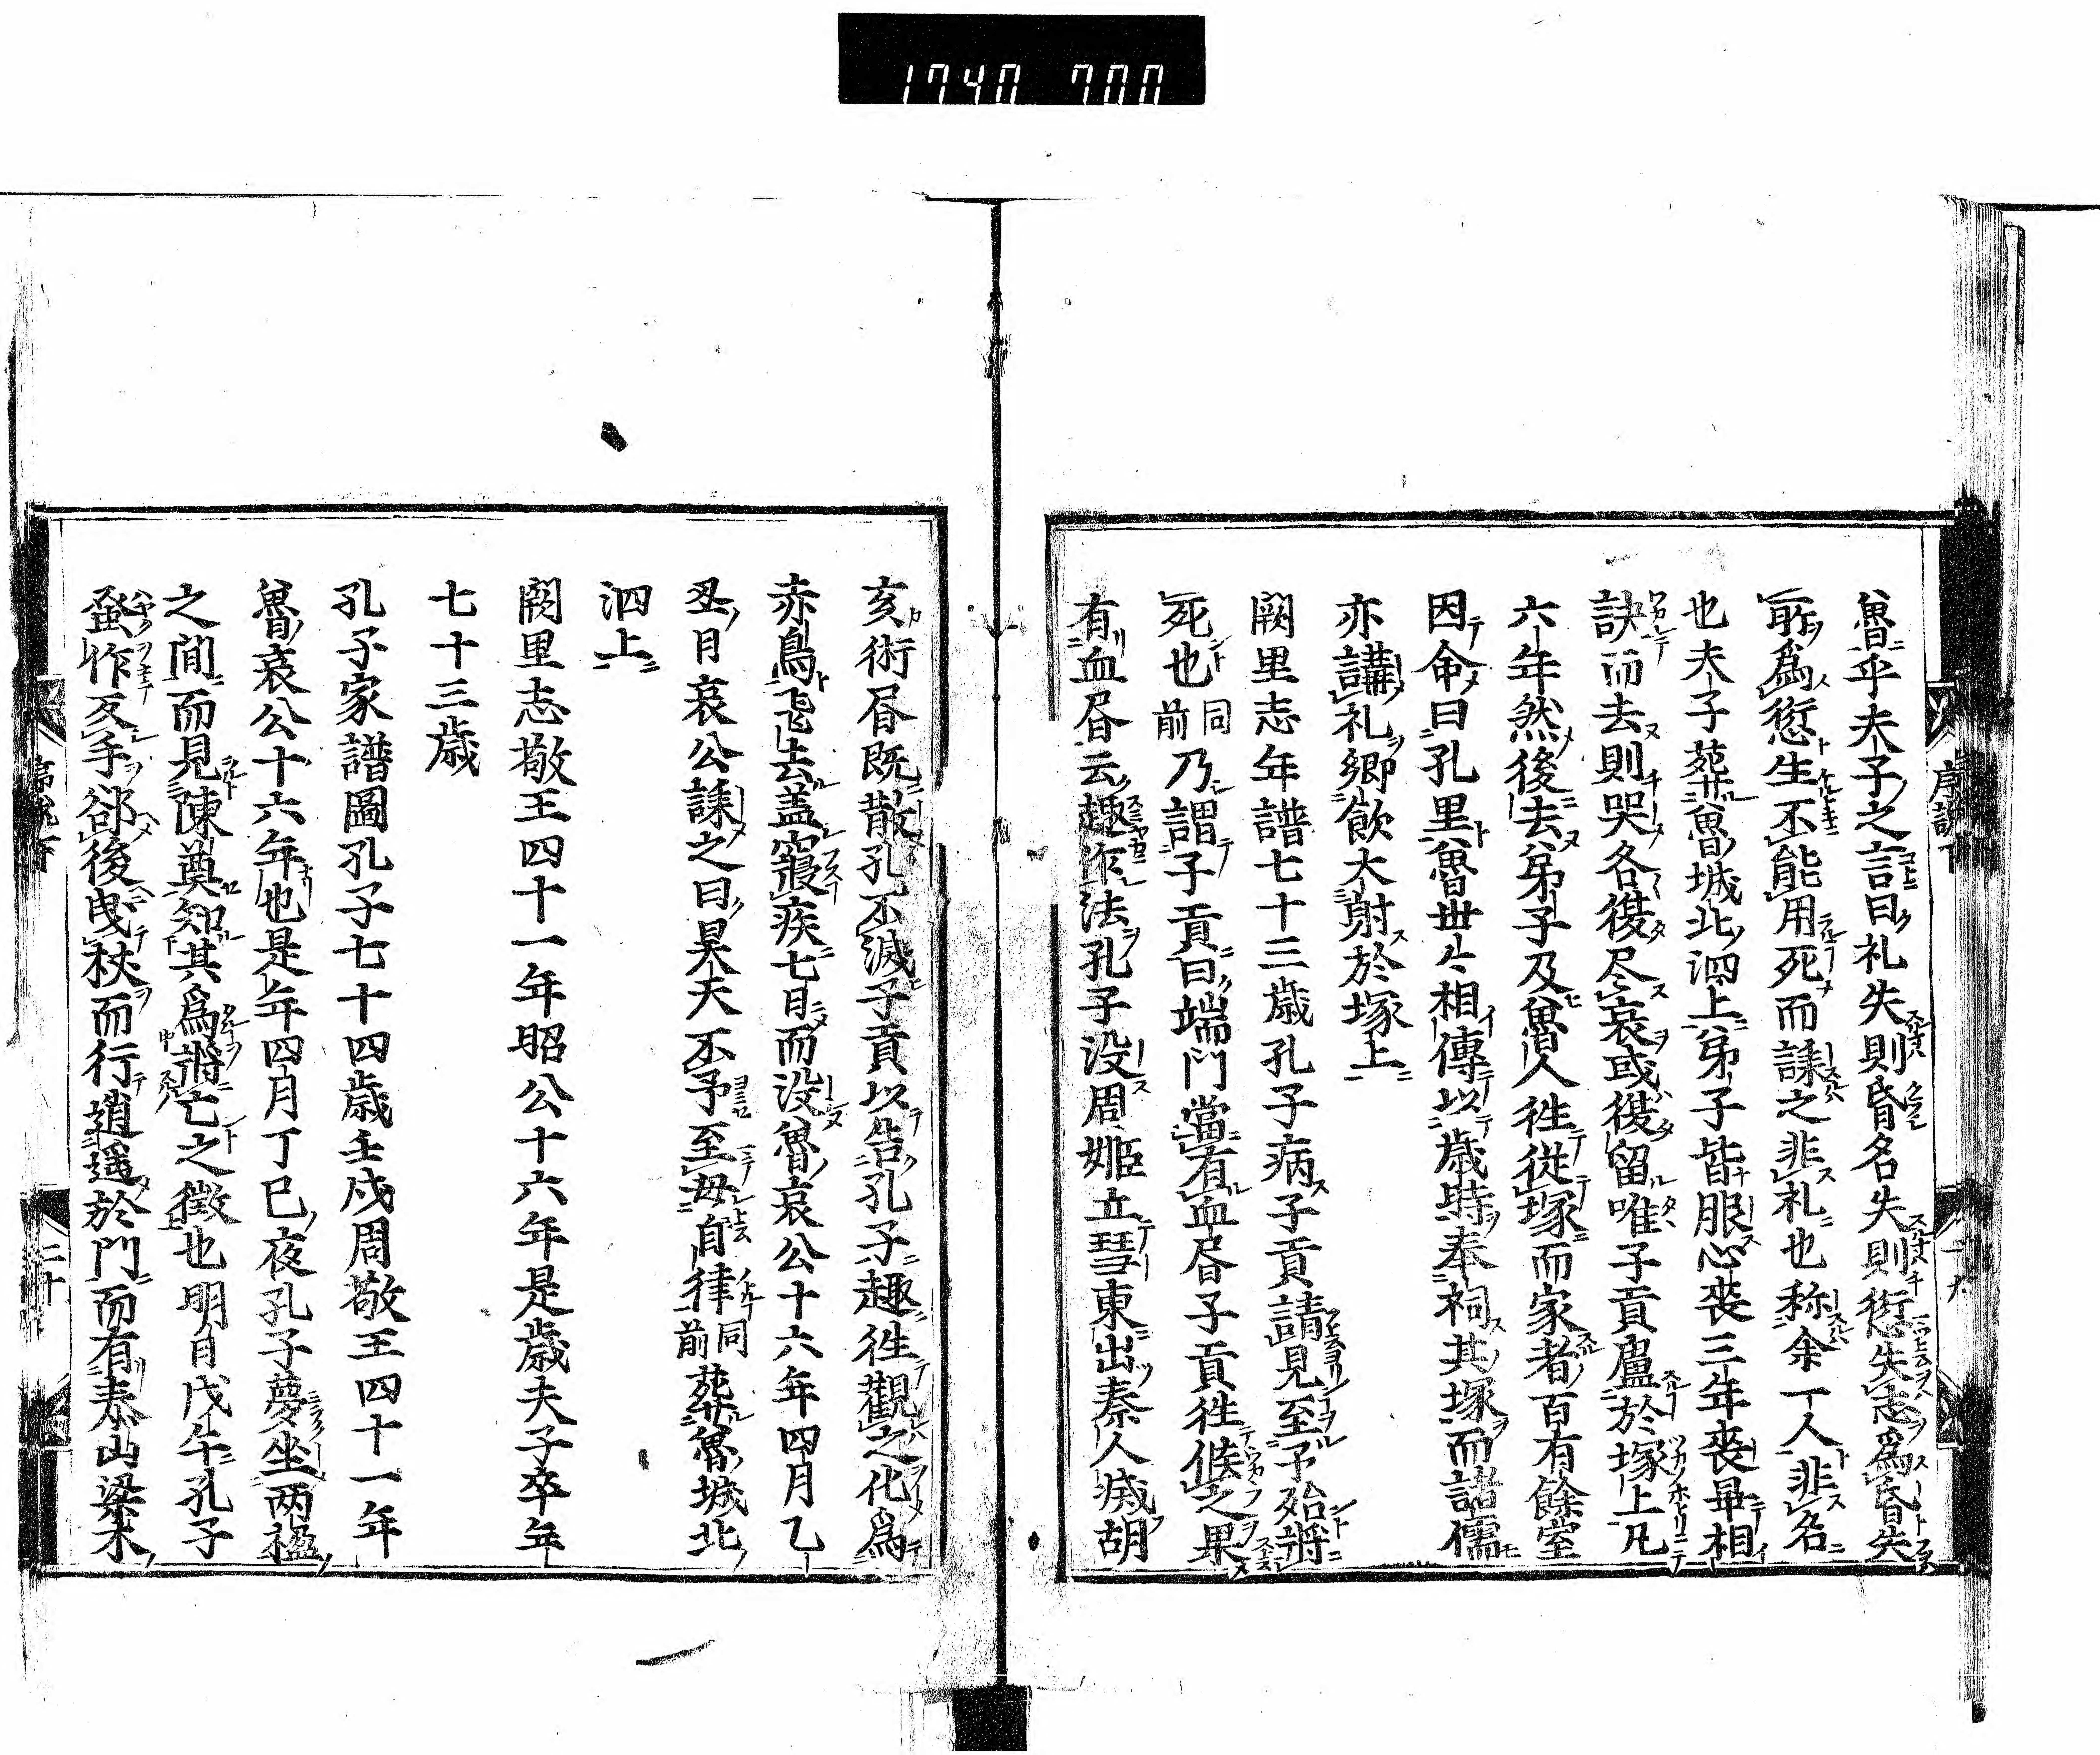 1740 700
魯乎夫子之言曰礼失則昏名失則愆失志爲昏失
所爲愆生不能用死而誄之非礼也称余一人非名
也夫子葬魯城北泗上弟子皆服心喪三年喪畢相
訣而去則哭各復尽哀或復留唯子貢廬於塚上凡
六年然後去弟子及魯人往從塚而家者百有餘室
因命曰孔里魯世々相傳以歳時奉祠其塚而諸儒
亦講礼郷飲大射於塚上
闕里志年譜七十三歳孔子病子貢請見至予殆將
死也同前乃謂子貢曰端門當有血昬子貢往候之果
有血昬云趣作法孔子没周姫立彗東出秦人滅胡
亥術昬既散孔不滅子貢以告孔子趣往觀之化爲
赤鳥飛去盖寢疾七日而没魯哀公十六年四月乙
丑日哀公誄之曰昊天不予至毋自律同前葬魯城北
泗上
闕里志敬王四十一年昭公十六年是歳夫子卒年
七十三歳
孔子家譜圖孔子七十四歳壬戌周敬王四十一年
魯哀公十六年也是年四月丁巳夜孔子夢坐両楹
之間而見陳奠知其爲將亡之徴也明日戊午孔子
蚤作反手郤後曳杖而行逍遥於門而有泰山梁木